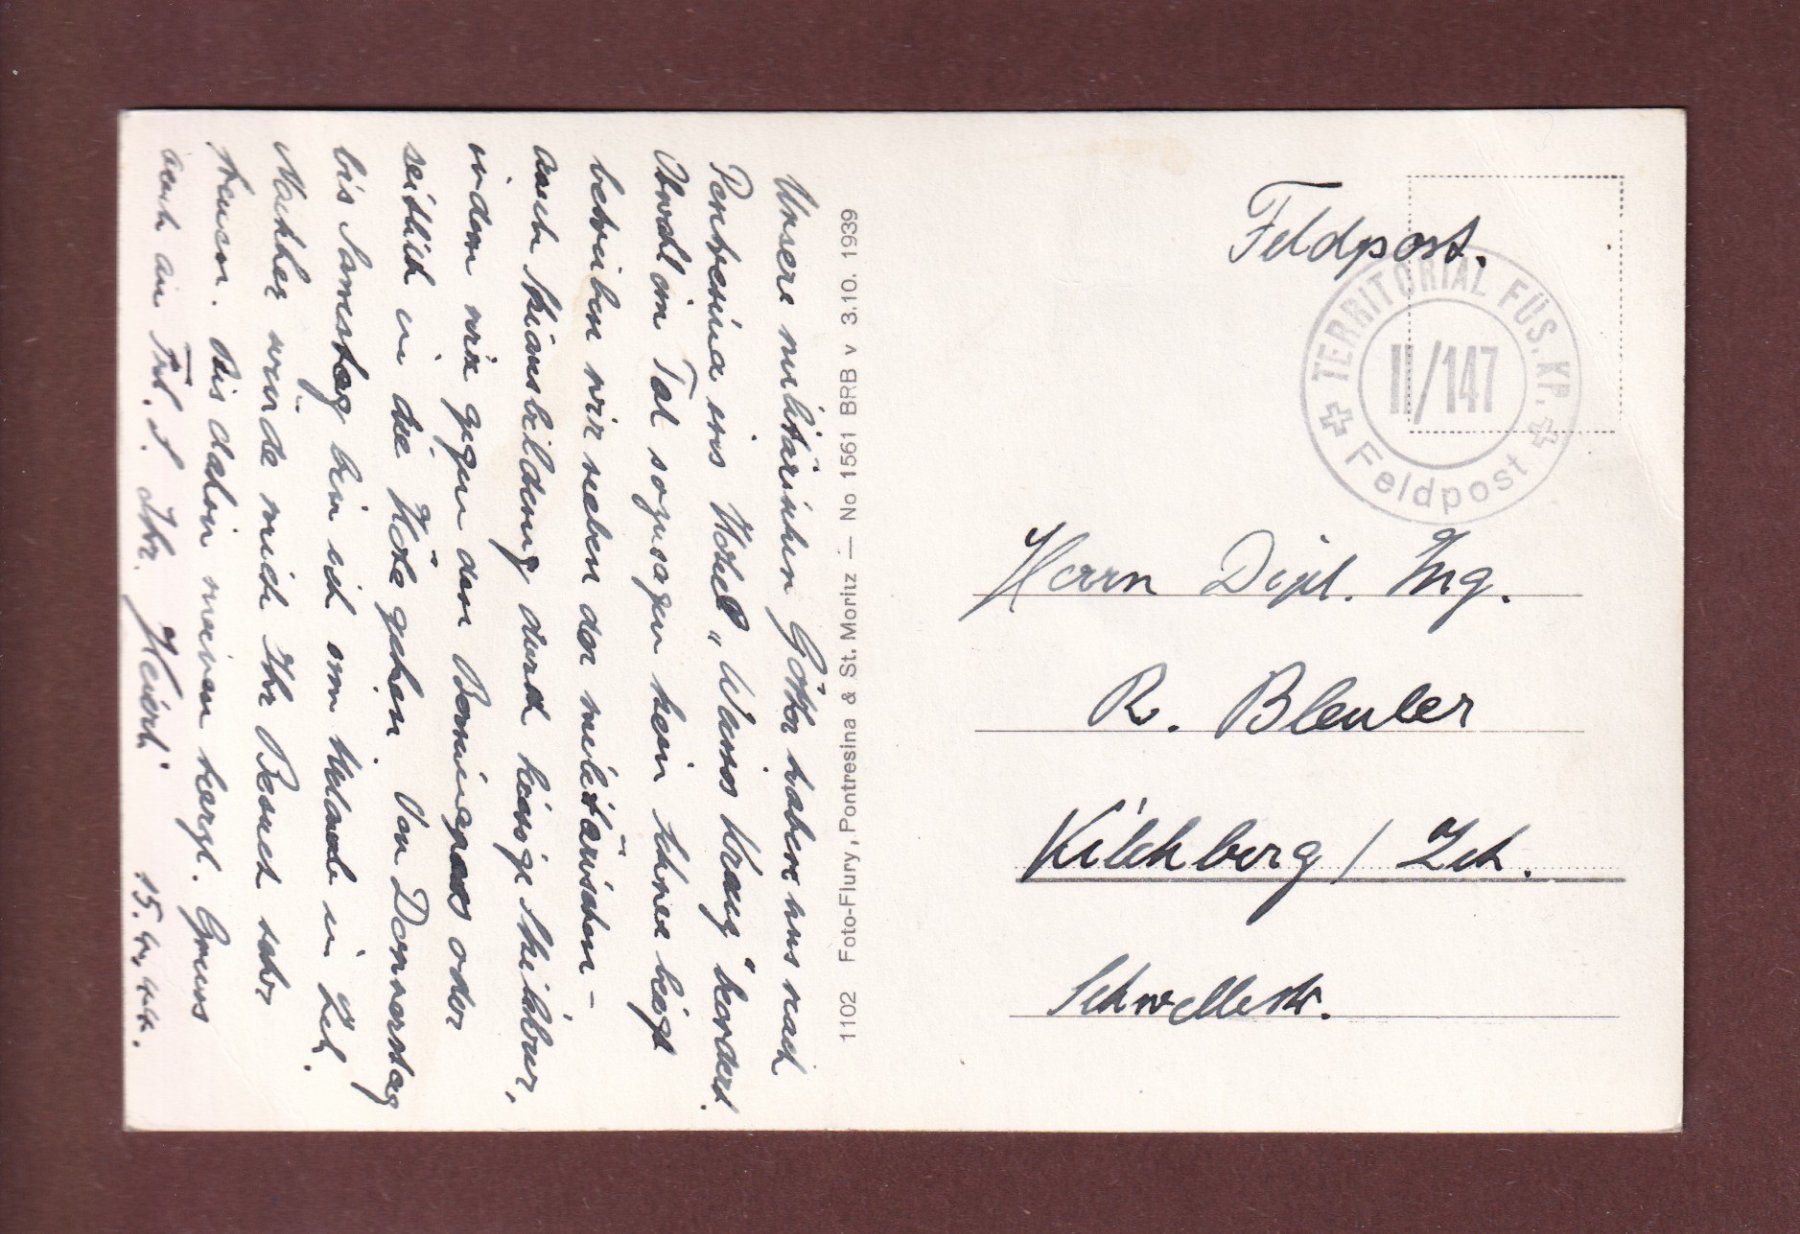 Unsere militärischen Götter haben uns nach
Pontresina ins Hotel „Weiss Kreuz" beordert.
Obwohl im Tal sozusagen kein Schnee liegt
betreiben wir neben der militärischen-
auch Skiausbildung durch Skikurs,
indem wir gegen den Berninapass oder
seitlich in die Höhe gehen. Von Donnerstag
bis Samstag bin ich im Urlaub in Zch.
Nachher würde mich Ihr Besuch sehr
freuen. Bis dahin meinen herzl. Gruss
auch an Frl. S. Ihr Heierli
15. 4. 44.
1102 Foto-Flury, Pontresina & St. Moritz — No 1561 BRB v 3.10. 1939
Feldpost.
TERRITORIAL FÜS. KP.
II/147
Feldpost
Herrn Dipl. Ing.
R. Bleuler
Kilchberg / Zch.
Schwellestr.